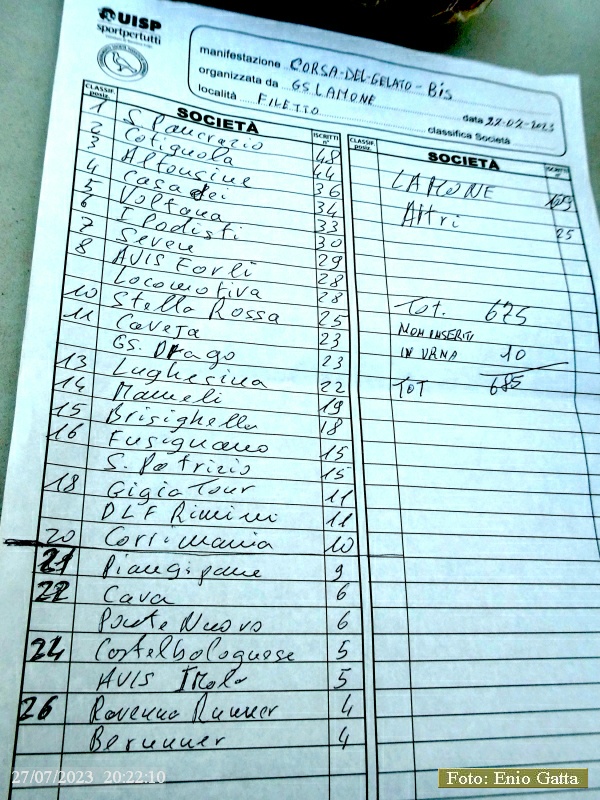 UISP
sportpertutti
manifestazione CORSA-DEL-GELATO-BIS
organizzata da GS LAMONE
località FILETTO
data 22-02-2023
classifica Società
CLASSIF. posiz. SOCIETÀ ISCRITTI n°
1 S. Pancrazio 48
2 Cotignola 44
3 Alfonsine 36
4 Casadei 34
5 Voltana 33
6 I Podisti 30
7 Severi 29
8 AVIS Forlì 28
Locomotiva 28
10 Stella Rossa 25
11 Caveja 23
GS. Drago 23
13 Lughesina 22
14 Mameli 19
15 Brisighella 18
16 Fusignano 15
S. Patrizio 15
18 Gigia Tour 11
DLF Rimini 11
20 Corrimania 10
21 Piangipane 9
22 Cava 6
Ponte Nuovo 6
24 Castelbolognese 5
AVIS Imola 5
26 Ravenna Runner 4
Berunner 4
CLASSIF. posiz. SOCIETÀ ISCRITTI n°
LAMONE
Altri 25
Tot. 675
NON INSERITI
IN URNA 10
TOT 685
27/07/2023 20:22:10
Foto: Enio Gatta